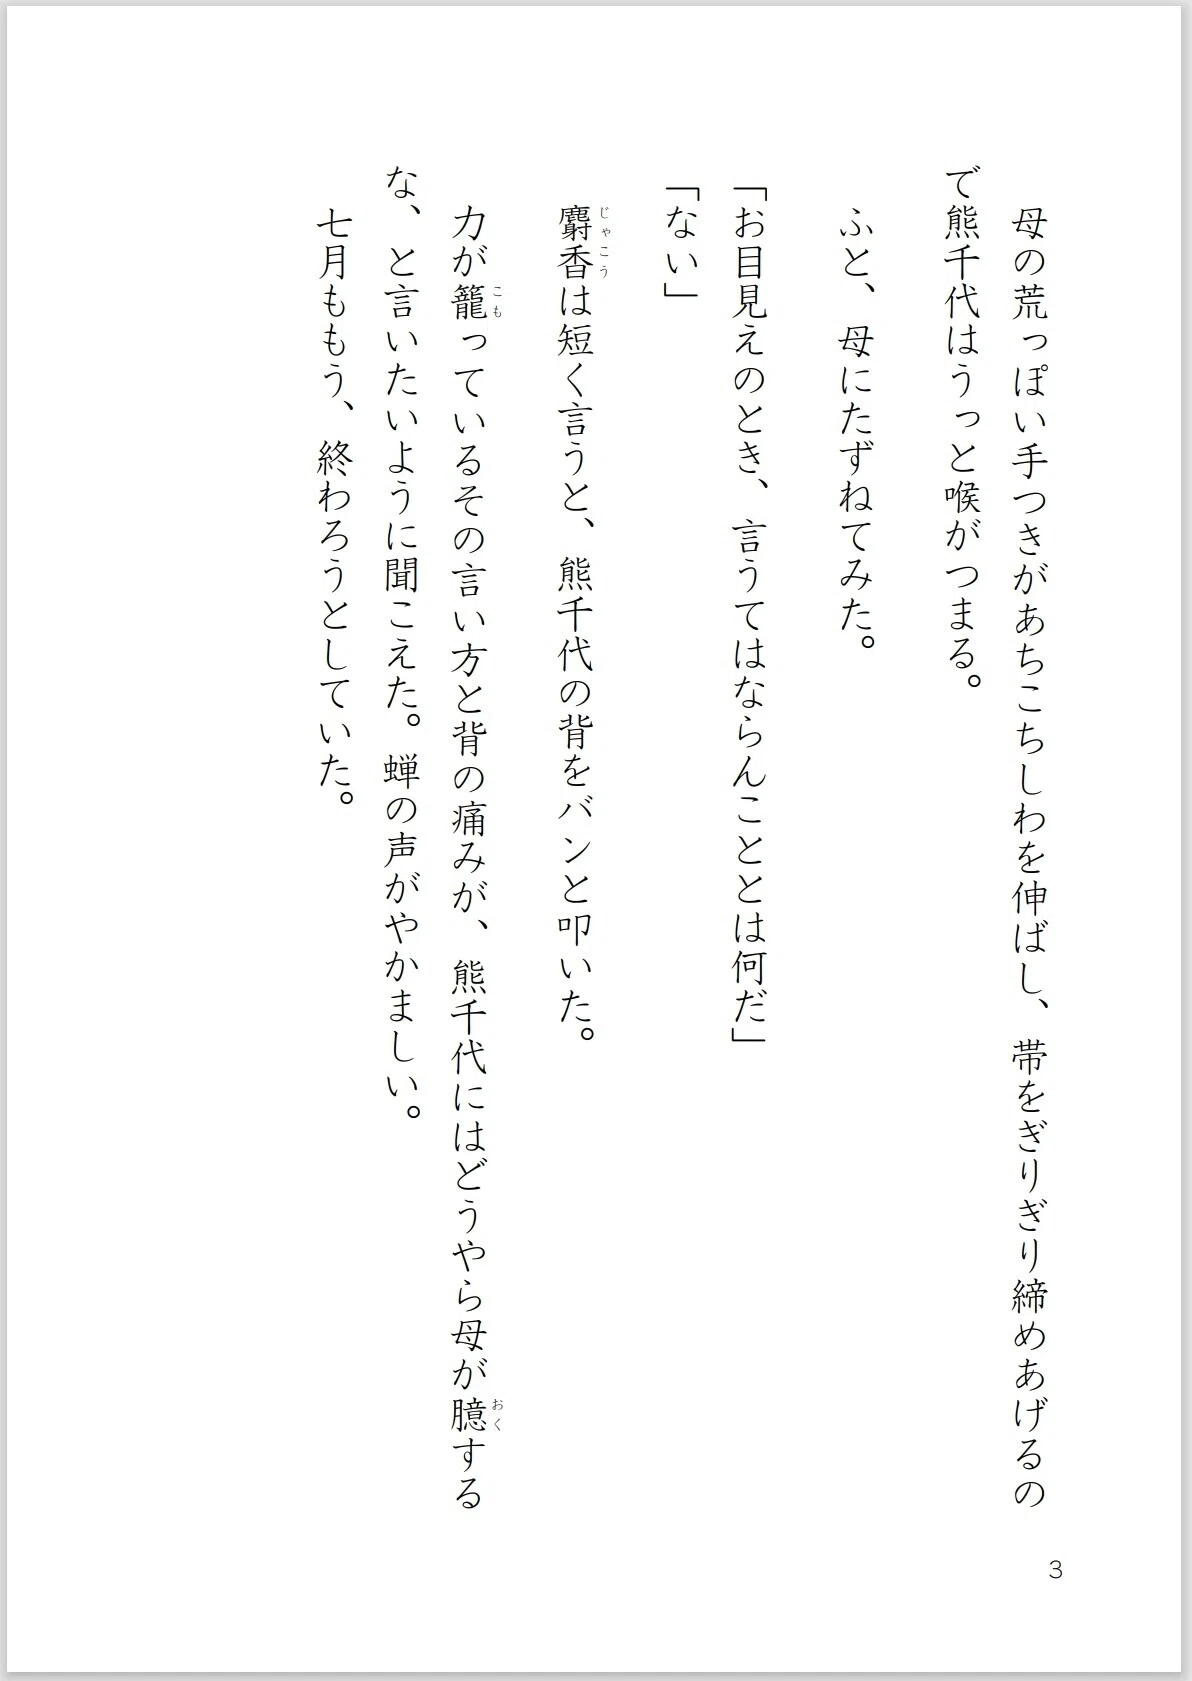 母の荒っぽい手つきがあちこちしわを伸ばし、帯をぎりぎり締めあげるの
で熊千代はうっと喉がつまる。
ふと、母にたずねてみた。
「お目見えのとき、言うてはならんこととは何だ」
「ない」
麝香は短く言うと、熊千代の背をバンと叩いた。
じゃこう
力が籠っているその言い方と背の痛みが、熊千代にはどうやら母が臆する
こも
おく
な、と言いたいように聞こえた。蝉の声がやかましい。
七月ももう、終わろうとしていた。
3